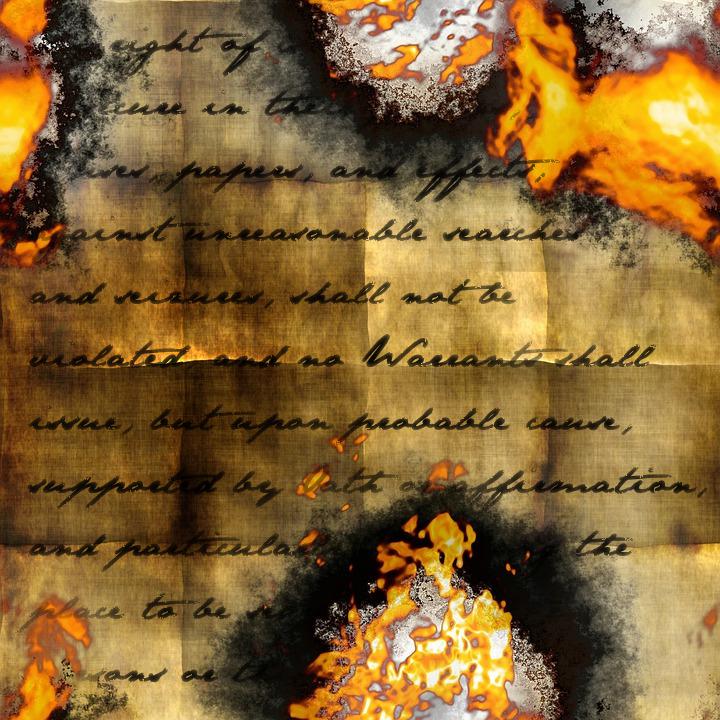 right of
in the
papers, and effects,
against unreasonable searches
and seizures, shall not be
violated and no Warrants shall
issue, but upon probable cause,
supported by Oath or affirmation,
and particular the
place to be
or th